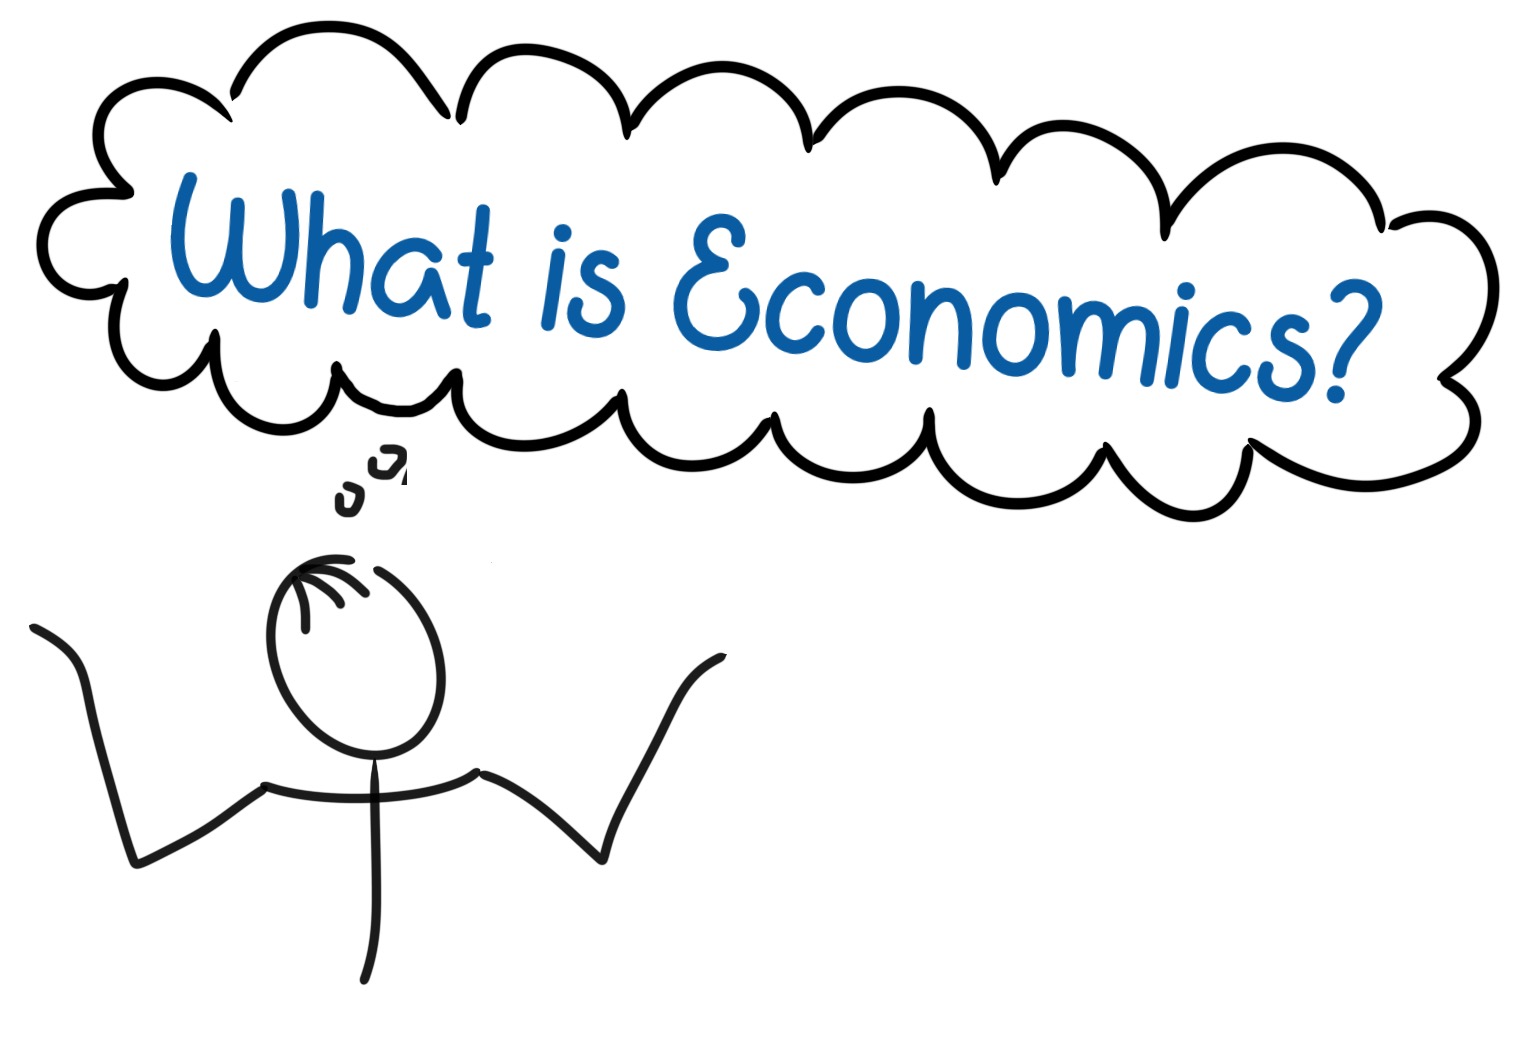 What is Economics?